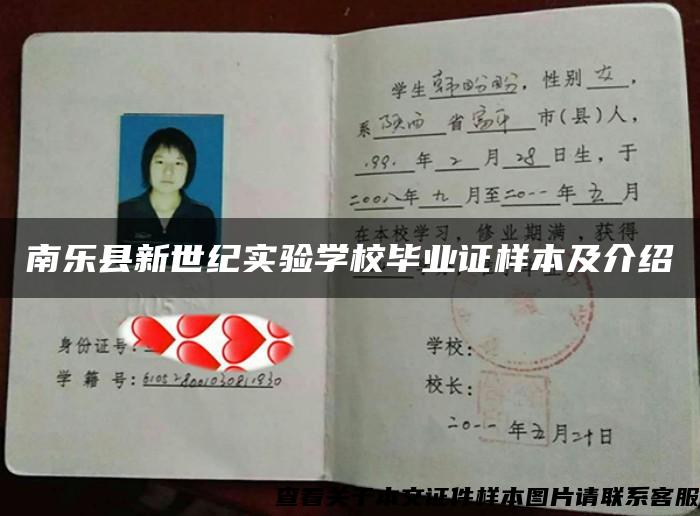 学生韩盼盼，性别女，
系陕西省富平市(县)人，
1991年2月28日生，于
二00八年九月至二0一一年五月
在本校学习，修业期满，获得
南乐县新世纪实验学校毕业证样本及介绍
身份证号：
学籍号：
学校：
校长：
二0一一年五月二十日
查看关于本文证件样本图片请联系客服